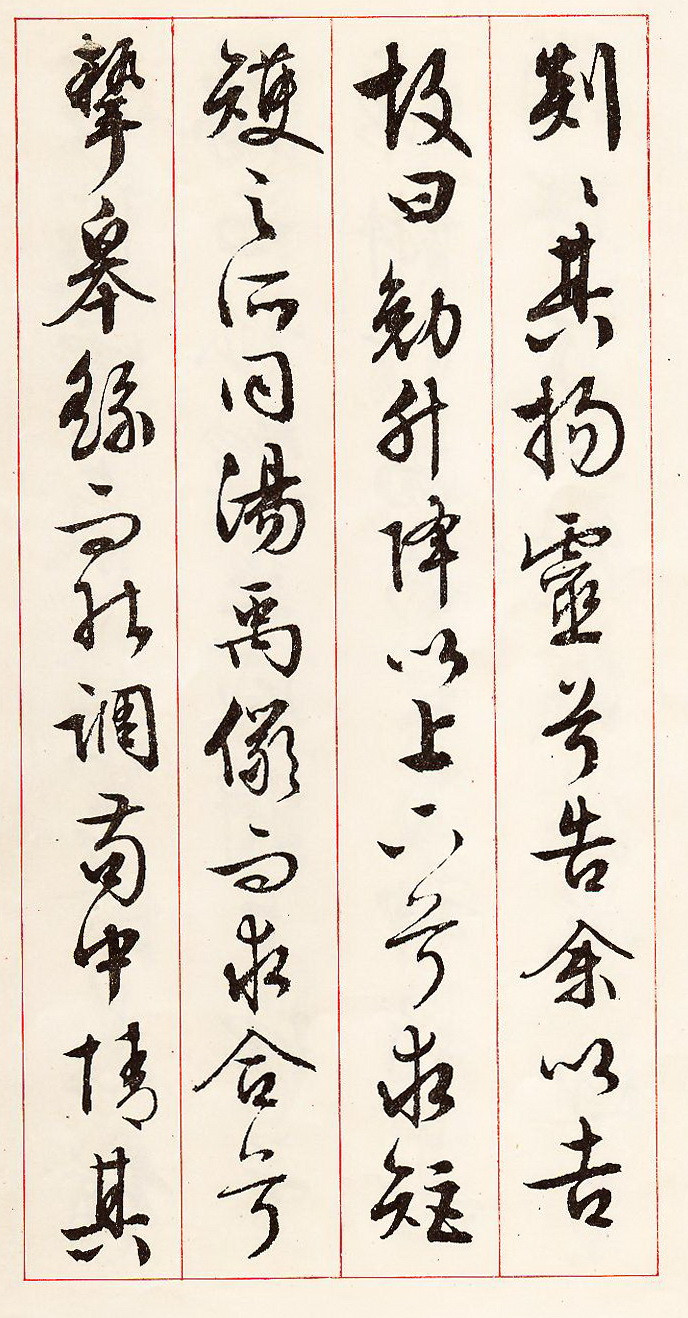 剡〻其揚靈兮告余以吉
故曰勉升降以上下兮求矩
矱之所同湯禹儼而求合兮
摯皋繇而能調苟中情其